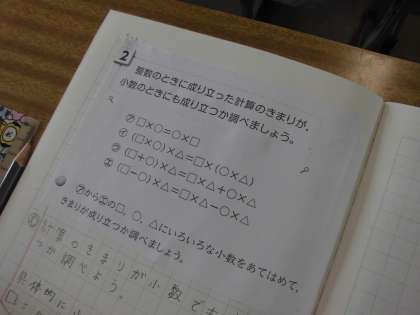 2
整数のときに成り立った計算のきまりが、
小数のときにも成り立つか調べましょう。
㋐ □×○=○×□
㋑ (□×○)×△=□×(○×△)
㋒ (□+○)×△=□×△+○×△
㋓ (□-○)×△=□×△-○×△
㋐から㋓の□、○、△にいろいろな小数をあてはめて、
きまりが成り立つか調べましょう。
計算のきまりが小数でも
つか調べよう。
具体的に